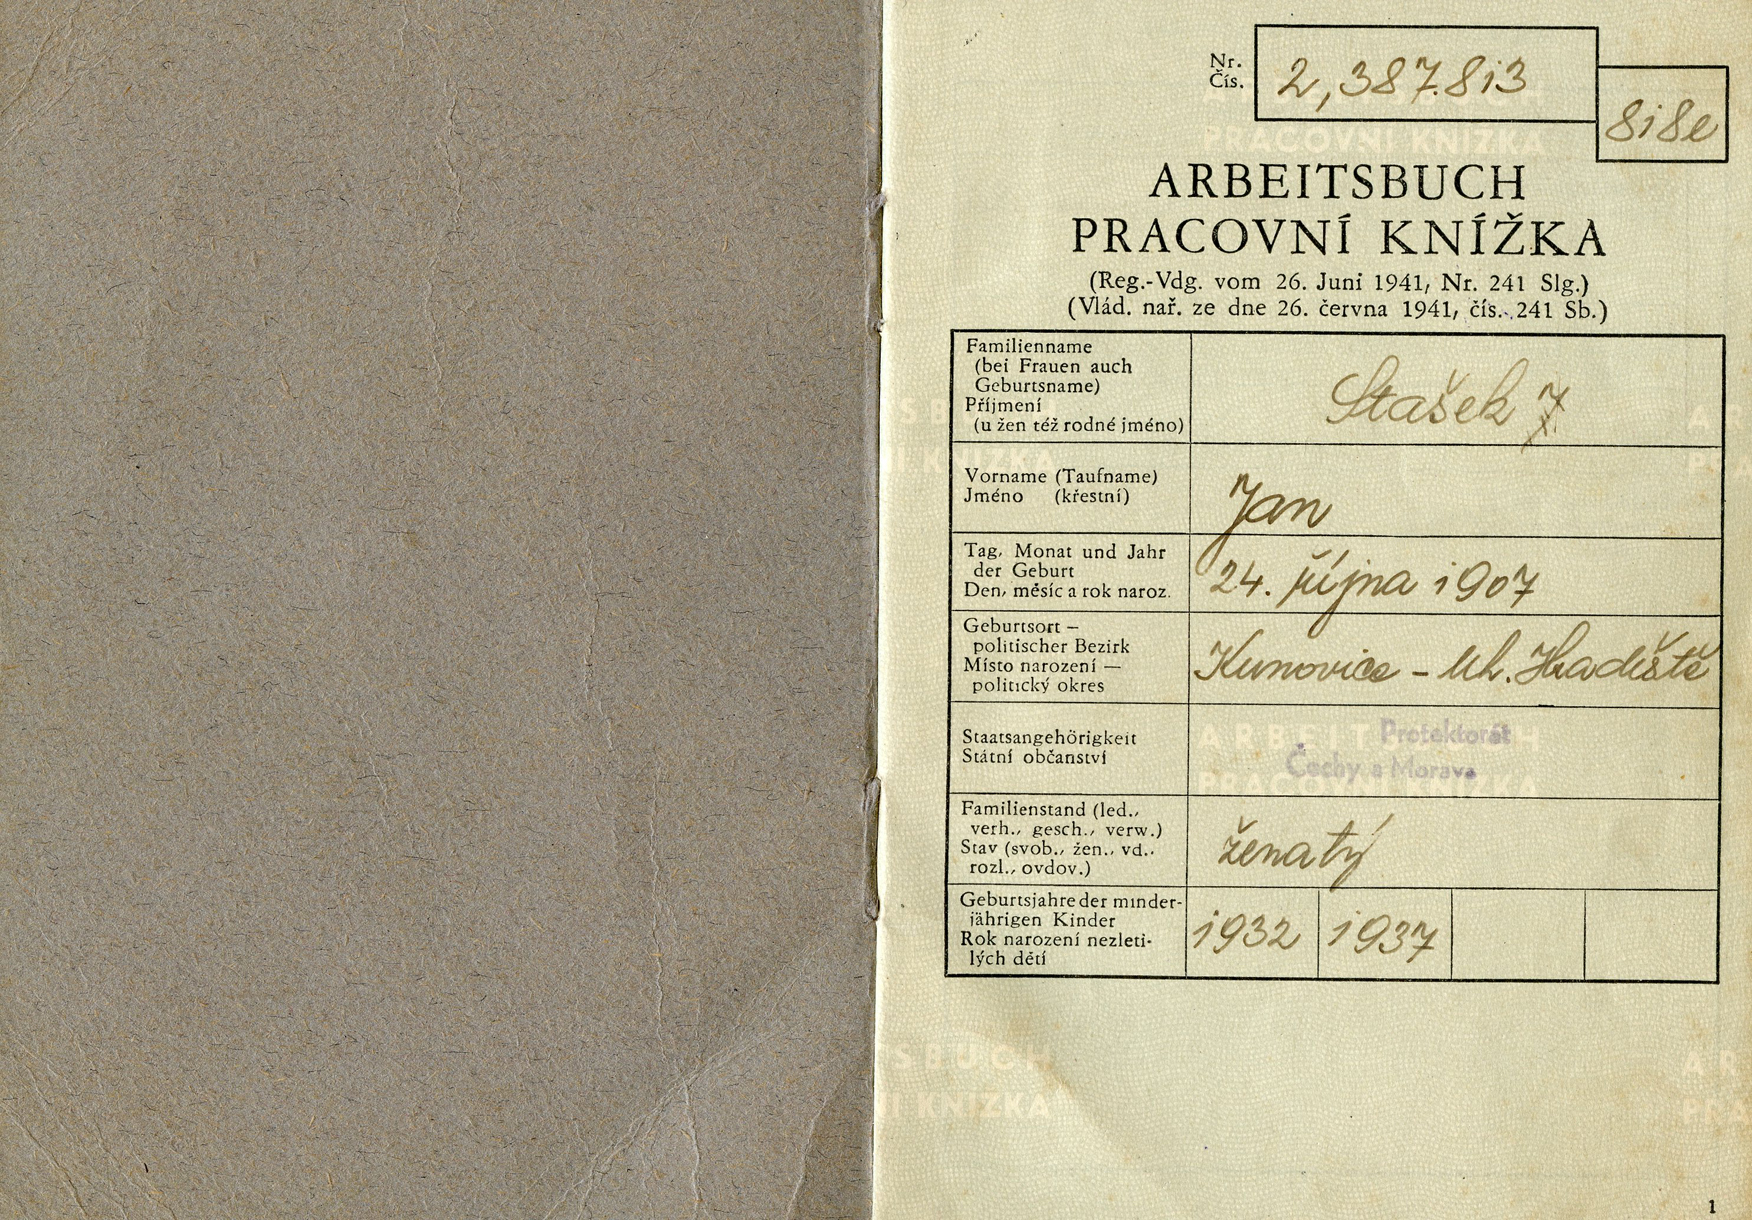 Nr.
Čís.
2,387.813
818e
ARBEITSBUCH
PRACOVNÍ KNÍŽKA
(Reg.-Vdg. vom 26. Juni 1941, Nr. 241 Slg.)
(Vlád. nař. ze dne 26. června 1941, čís. 241 Sb.)
Familienname
(bei Frauen auch
Geburtsname)
Příjmení
(u žen též rodné jméno)
Stašek
Vorname (Taufname)
Jméno (křestní)
Jan
Tag, Monat und Jahr
der Geburt
Den, měsíc a rok naroz.
24. října 1907
Geburtsort –
politischer Bezirk
Místo narození —
politický okres
Kunovice – Uh. Hradiště
Staatsangehörigkeit
Státní občanství
Protektorát
Čechy a Morava
Familienstand (led.,
verh., gesch., verw.)
Stav (svob., žen., vd.,
rozl., ovdov.)
ženatý
Geburtsjahre der minder-
jährigen Kinder
Rok narození nezleti-
lých dětí
1932 1937
1